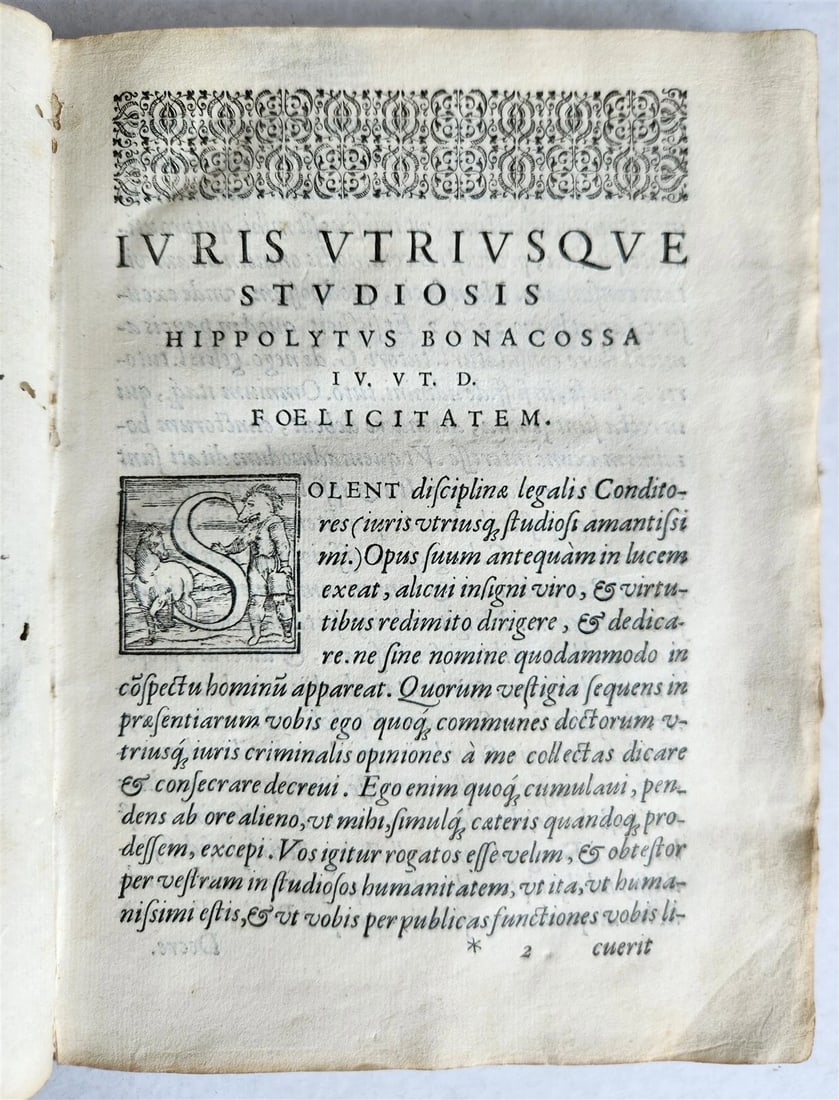 IVRIS VTRIVSQVE
STVDIOSIS
HIPPOLYTVS BONACOSSA
IV. VT. D.
FOELICITATEM.
SOLENT diſciplinæ legalis Condito-
res (iuris vtriusq́ꝫ ſtudioſi amantiſsi
mi.) Opus ſuum antequàm in lucem
exeat, alicui inſigni viro, & virtu-
tibus redimito dirigere, & dedica-
re. ne ſine nomine quodammodo in
cōſpectu hominū appareat. Quorum veſtigia ſequens in
præſentiarum vobis ego quoq́ꝫ communes doctorum v-
triusq́ꝫ iuris criminalis opiniones à me collectas dicare
& conſecrare decreui. Ego enim quoq́ꝫ cumulaui, pen-
dens ab ore alieno, vt mihi, ſimulq́ꝫ cæteris quandoq́ꝫ pro-
deſſem, excepi. Vos igitur rogatos eſſe velim, & obteſtor
per veſtram in ſtudioſos humanitatem, vt ita, vt huma-
niſsimi eſtis, & vt vobis per publicas functiones vobis li-
* 2 cuerit